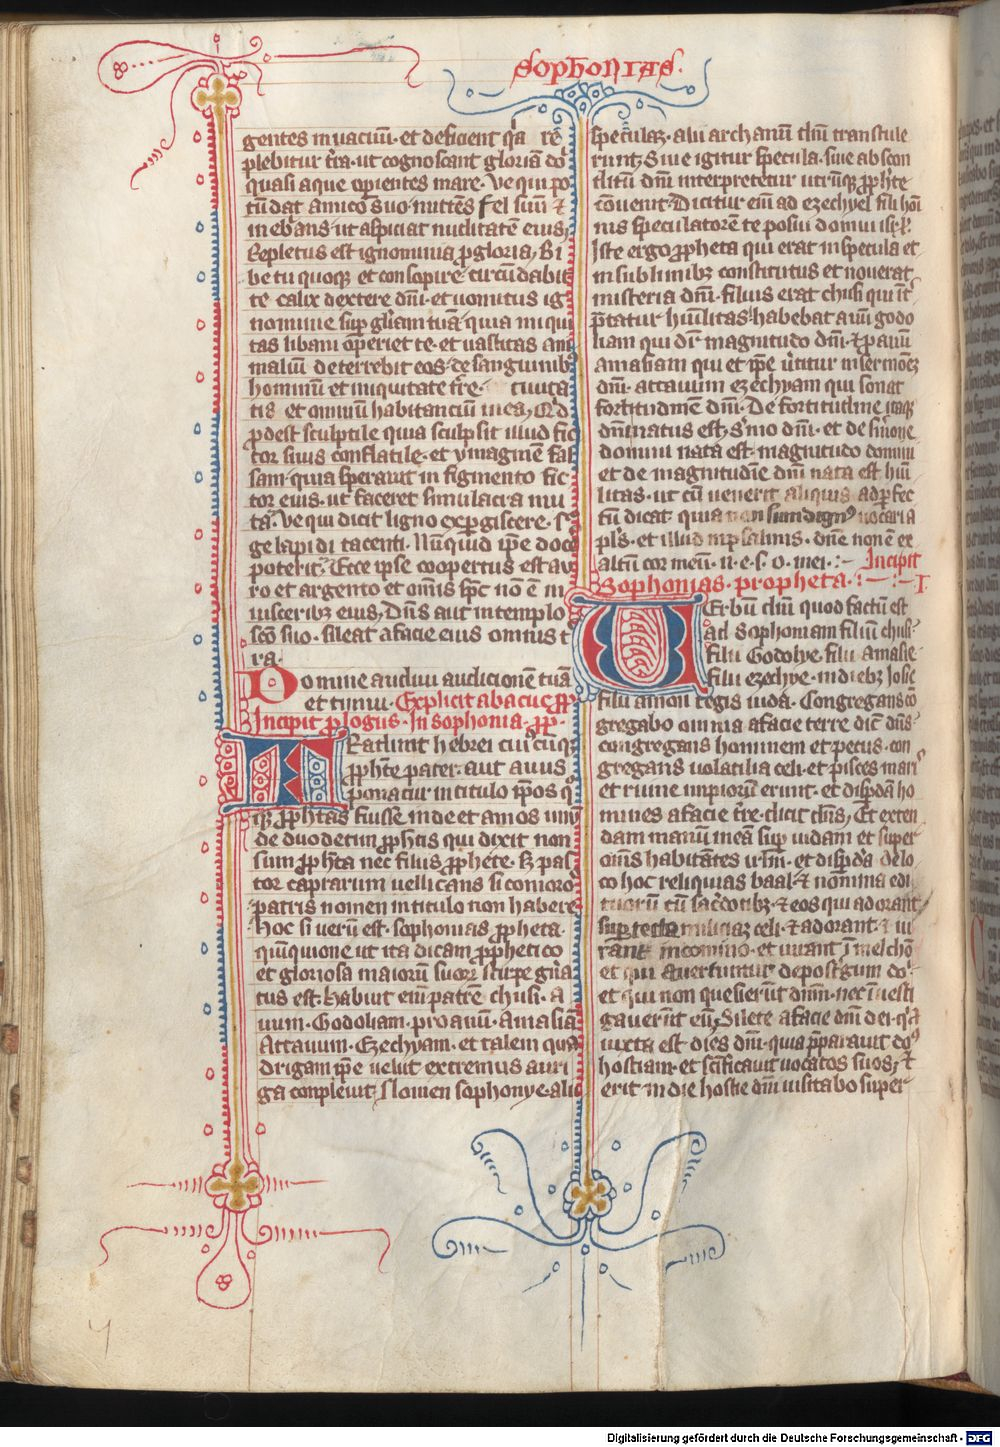 sophonias.
gentes in uacuū · et deficient q̄a rē
plebitur t̄ra · ut cognoscant gloriā dō
quasi aque opientes mare · Ve qui po
tū dat amico suo · mittēs fel suū ⁊
inebrians · ut aspiciat nuditatē eius,
Repletus est ignominia ꝓ gloria, Bi
be tu quoqꝫ et consopire · circūdabit
te calix dextere dn̄i · et uomitus ig
nominie sup gl̄iam tuā · quia iniqui
tas libani operiet te · et uastitas ani
maliū deterrebit eos · de sanguinibꝫ
hominū et iniquitate t̄re · ciuita
tis et omniū habitanciū in ea, Q'd
ꝓdest sculptile quia sculpsit illud fic
tor suus conflatile · et ymaginē fal
sam · quia sperauit in figmento fic
tor eius · ut faceret simulacra mu
ta. Ve qui dicit ligno expgiscere · sur
ge lapidi tacenti · Nūquid ip̄e doce
poterit. Ecce ipse coopertus est au
ro et argento et om̄is sp̄c nō ē in
uisceribꝫ eius, Dn̄s aut in templo
sc̄o suo · sileat a facie eius omnis t
ra.
Domine audiui audicionē tuā
et timui · Explicit abacuc ꝓp̄
Incipit plogus · In sophonia · ꝓp̄ ·
Tradunt hebrei cui'cūqꝫ
ꝓph̄te pater · aut auus
ponatur in titulo ip̄os q̄
iqꝫ ꝓph̄tas fuisse · inde et amos unꝰ
de duodecim ꝓph̄tis qui dixit non
sum ꝓph̄ta nec filius ꝓphete · sꝫ pas
tor caprarum uellicans sicomoros
patris nomen in titulo non habere
hoc si uerū est · sophonias ꝓpheta ·
qui ut ita dicam ꝓphetico
et gloriosa maiorū suoꝝ stirpe gn̄a
tus est · habuit em̄ patrē chusi · A
uum · Godoliam · proauū · Amasiā
Attauum · Ezechyam · et talem qua
drigam ip̄e uelut extremus auri
ga compleuit, Nomen sophonye · alii
speculaꝫ · alii archanū dn̄i transtule
runt, Siue igitur specula · siue abscon
ditū dn̄i interpretetur utrūqꝫ ꝓph̄te
cōuenit · Dicitur em̄ ad ezechyel fili hoī
nis speculatorē te posui domui isrl̄.
Iste ergo ꝓpheta qui erat in specula et
in sublimibꝫ constitutus et nouerat
misteria dn̄i · filius erat chusi qui īt̄
p̄tatur hūilitas · habebat auū godo
liam qui dr̄ magnitudo dn̄i · ⁊ ꝓauū
amasiam qui et ip̄e ūtitur in sermōeꝫ
dn̄i · attauum ezechyam qui sonat
fortitudinē dn̄i · De fortitudine itaqꝫ
dn̄i natus est, s'mo dn̄i · et de sermone
domini nata est · magnitudo domini
et de magnitudine dn̄i nata est hūi
litas · ut cū uenerit aliquis ad pfec
tū dicat · quia non sum dignꝰ uocari a
pl's · et illud in psalmis · dn̄e non ē ex
altū cor meū · n · e · s · o · mei :~ Incipit
Sophonias · propheta · :~ : ~ I
Verbū dn̄i quod factū est
ad sophoniam filiū chusi ·
filii Godolye · filii amasie ·
filii ezechye · in diebꝫ Iosie
filii amon regis iuda · Congregans cō
gregabo omnia a facie terre dic̄ dn̄s ·
congregans hominem et pecus · con
gregans uolatilia celi · et pisces maris
et ruine impiorū erunt · et disp̄dā ho
mines a facie t̄re · dicit dn̄s, Et exten
dam manū meā sup iudam et super
om̄s habitantes ir̄lm̄ · et disp̄dā de lo
co hoc reliquias baal · ⁊ nomina edi
tuorū cū sac̄dotibꝫ · ⁊ eos qui adorant
sup tecta miliciaꝫ celi · ⁊ adorant · ⁊ iu
rant in domino · et iurant ī melchō
et qui auertuntur de post t̄gum dō ·
et qui non quesierūt dn̄m · nec īuesti
gauerūt eū, Silete a facie dn̄i dei · q̄a
iuxta est dies dn̄i · quia p̄parauit dōs
hostiam · et sc̄ificauit uocatos suos, ⁊
erit in die hostie dn̄i uisitabo super
Digitalisierung gefördert durch die Deutsche Forschungsgemeinschaft - DFG